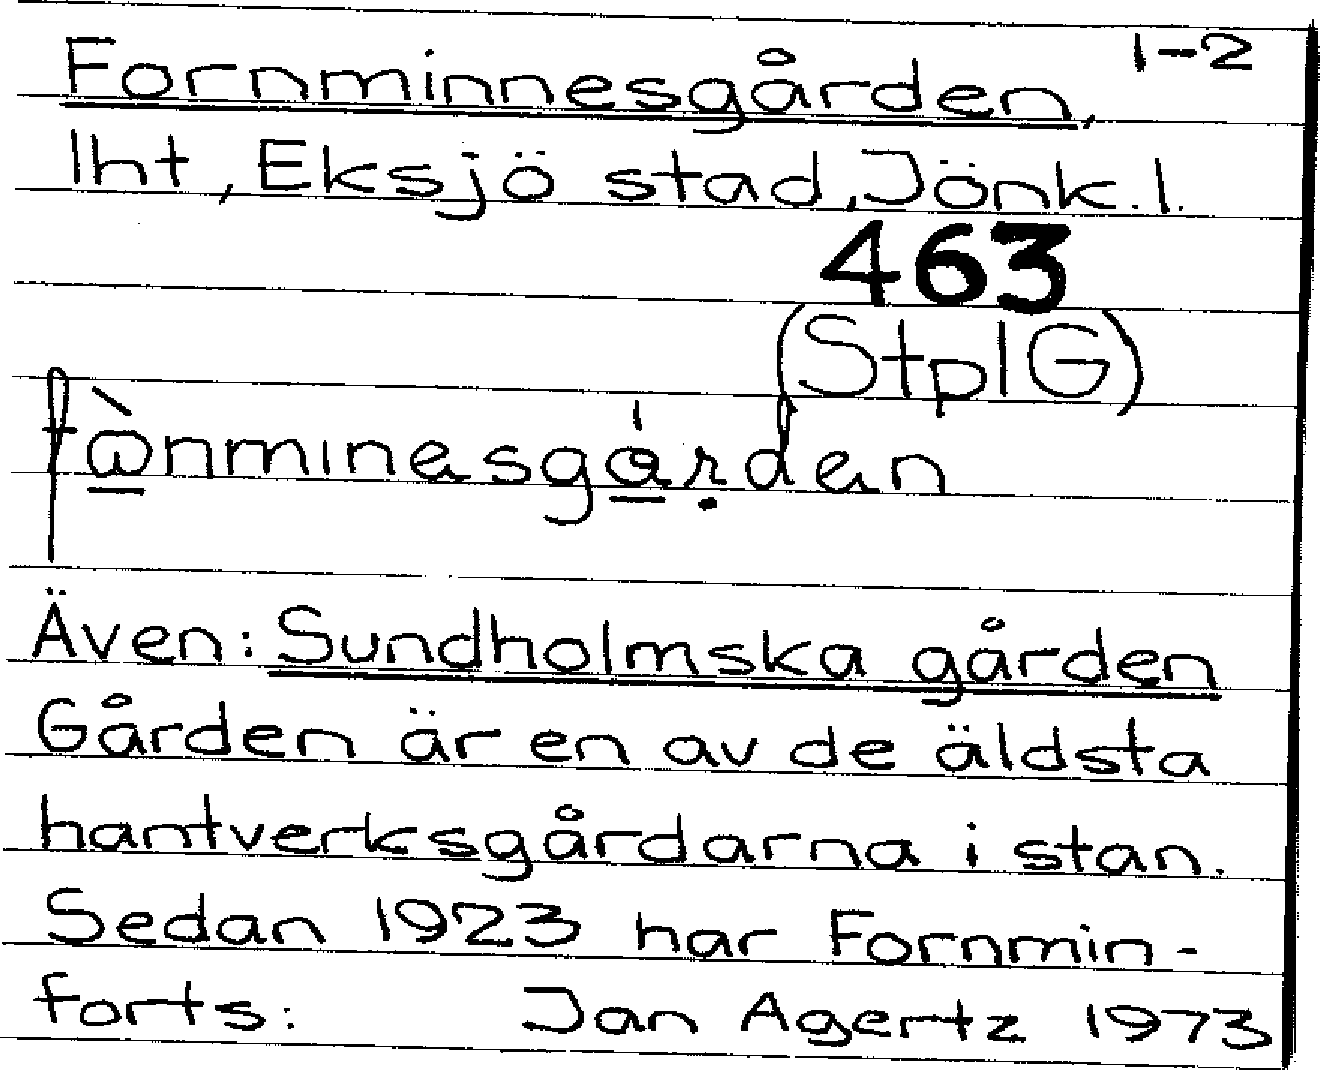 Fornminnesgården, 1-2
lht, Eksjö stad, Jönk. l.
463
(StplG)
Även: Sundholmska gården
Gården är en av de äldsta
hantverksgårdarna i stan.
Sedan 1923 har Fornmin-
forts: Jan Agertz 1973